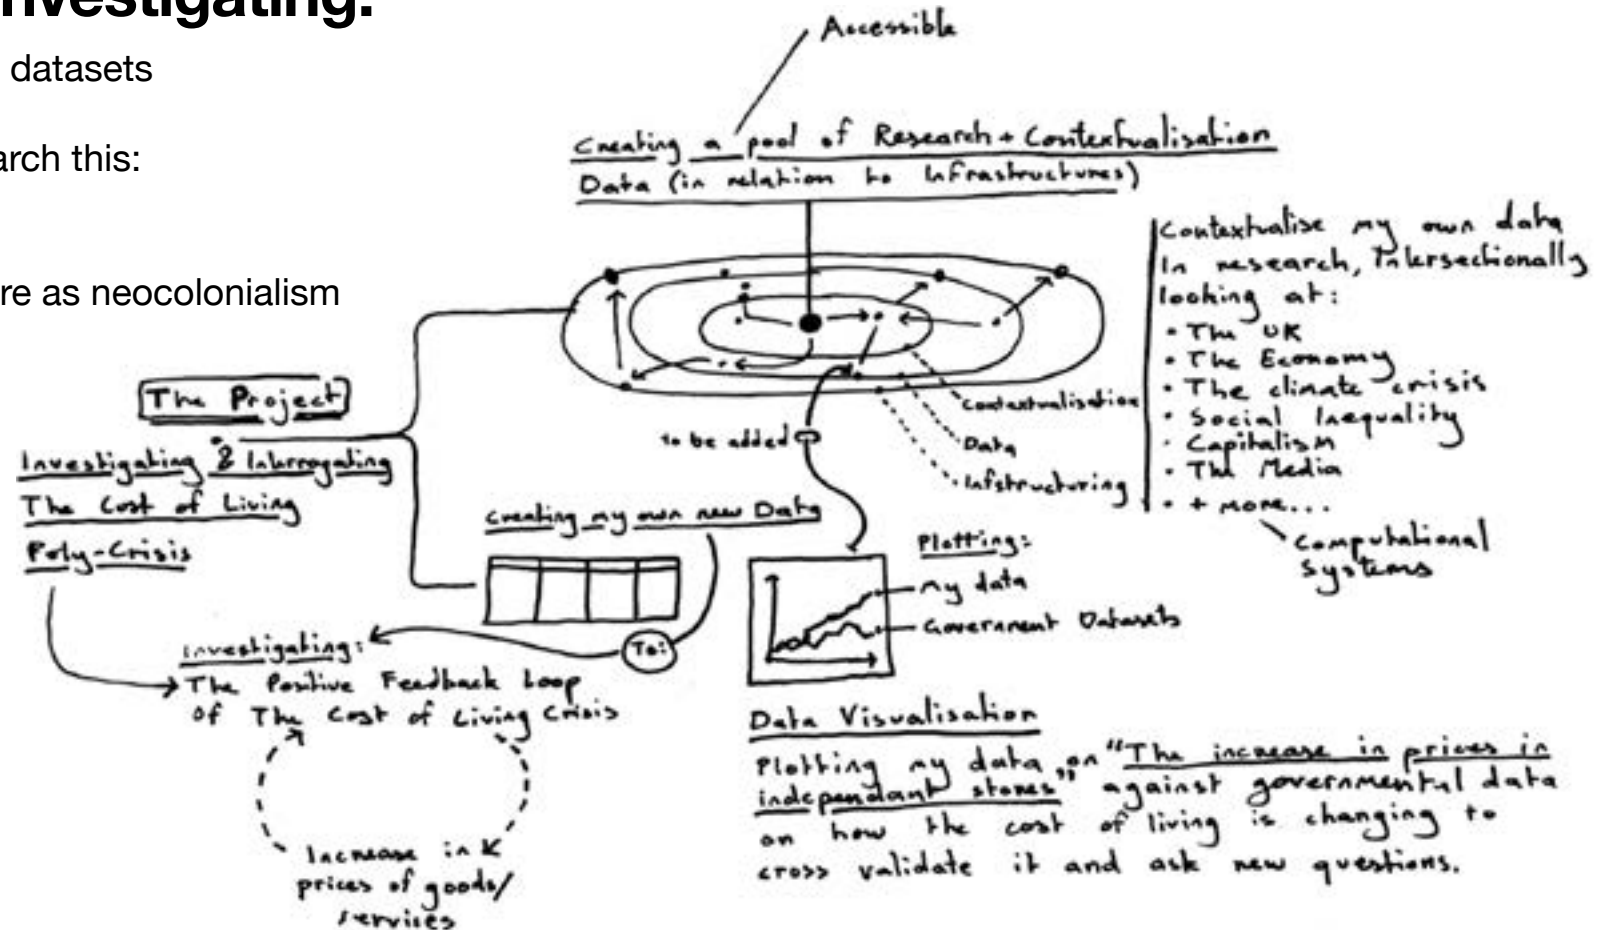 nvestigating.
datasets
arch this:
re as neocolonialism
Accessible
Creating a pool of Research + Contextualisation
Data (in relation to Infrastructures)
Contextualise my own data
In research, Intersectionally
looking at:
• The UK
• The Economy
• The climate crisis
• Social Inequality
• Capitalism
• The Media
• + more...
Computational
Systems
Contextualisation
Data
Infstructuring
to be added
The Project
Investigating & Interrogating
The Cost of Living
Poly-Crisis
Creating my own new Data
To:
Investigating:
The Positive Feedback Loop
Of The Cost of Living Crisis
Increase in
prices of goods/
services
Plotting:
my data
Government Datasets
Data Visualisation
Plotting my data on "The increase in prices in
independant stores" against governmental data
on how the cost of living is changing to
cross validate it and ask new questions.